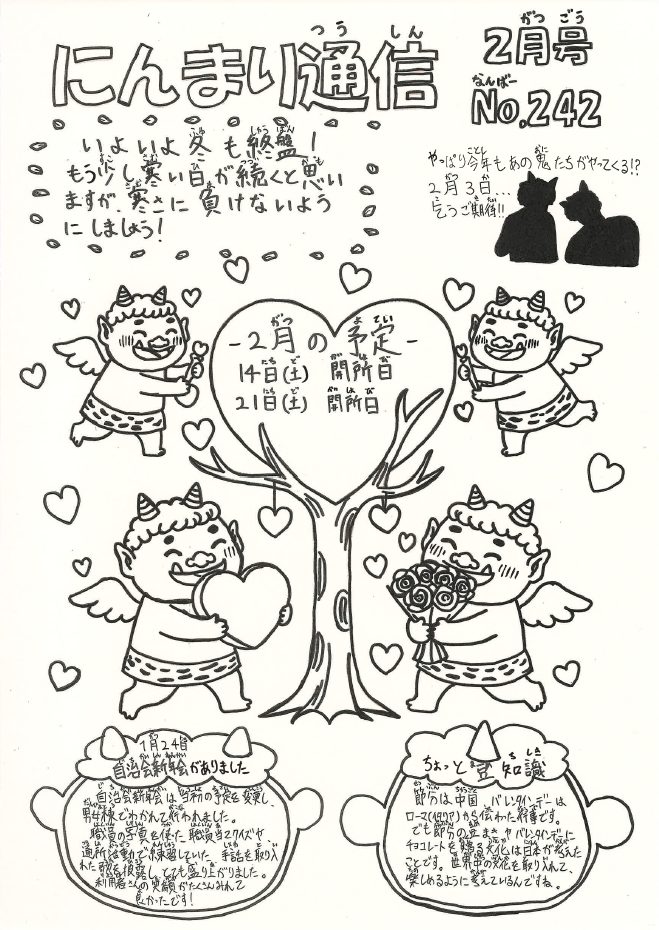 にんまり通信
2月号
No.242
いよいよ冬も終盤!
もう少し寒い日が続くと思い
ますが、寒さに負けないよう
にしましょう!
やっぱり今年もあの鬼たちがやってくる!?
2月3日…
乞うご期待!!
-2月の予定-
14日(土) 開所日
21日(土) 開所日
1月24日
自治会新年会がありました
自治会新年会は当初の予定を変更し、
男女棟でわかれて行われました。
職員の写真を使った職員当てクイズや
通所活動で練習していた手話を取り入
れた歌を披露し、とても盛り上がりました。
利用者さんの笑顔がたくさんみれて
良かったです!
ちょっと豆知識
節分は中国、バレンタインデーは
ローマ(イタリア)から伝わった行事です。
でも節分の豆まきやバレンタインデーに
チョコレートを贈る文化は日本が考えた
ことです。世界中の文化を取り入れて、
楽しめるように考えているんですね。